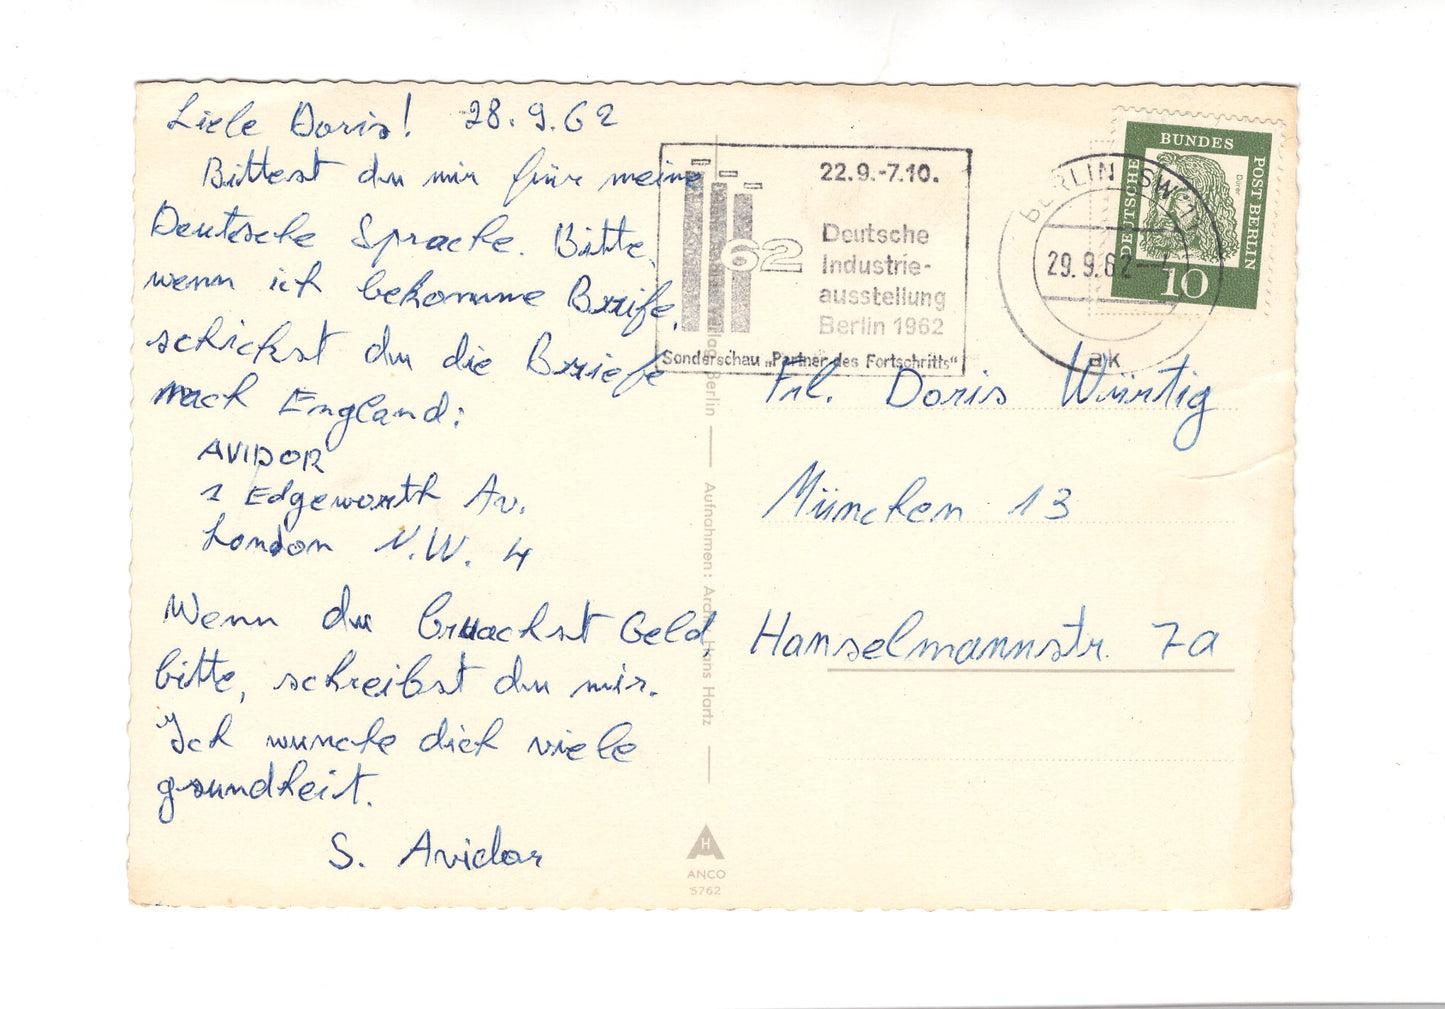 Liebe Doris! 28.9.62
Bittest du mir für meine
Deutsche Sprache. Bitte,
wenn ich bekomme Brife,
schickst du die Briefe
nach England:
AVIDOR
1 Edgeworth Av.
London N.W. 4
Wenn du brauchst Geld,
bitte, schreibst du mir.
Ich wunche dich viele
gsundheit.
S. Avidor
22.9.-7.10.
62
Deutsche
Industrie-
ausstellung
Berlin 1962
Sonderschau „Partner des Fortschritts“
BERLIN SW
29.9.62
ak
DEUTSCHE
BUNDES
POST BERLIN
Dürer
10
Frl. Doris Würtig
München 13
Hanselmannstr. 7a
Berlin
Aufnahmen: Hans Hartz
H
ANCO
5762